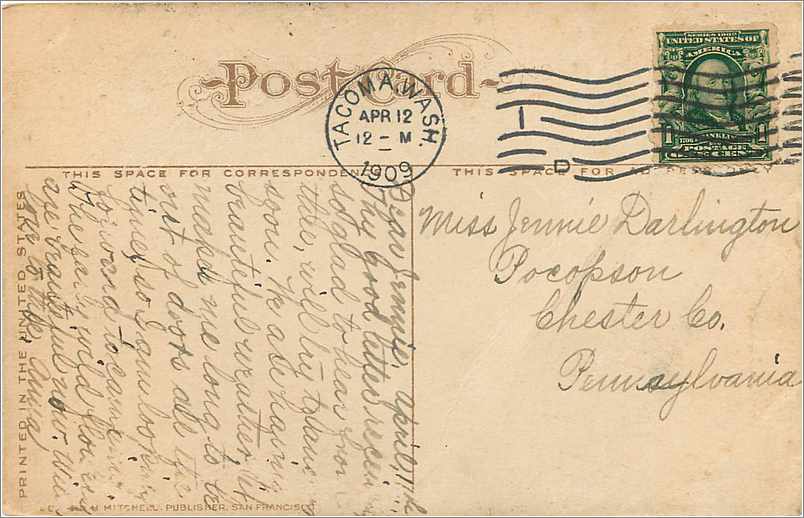 Post Card
TACOMA, WASH.
APR 12
12 - M
1909
1
D
SERIES 1902
UNITED STATES OF
AMERICA
FRANKLIN
POSTAGE
ONE CENT
THIS SPACE FOR CORRESPONDENCE
THIS SPACE FOR ADDRESS ONLY
Miss Jennie Darlington
Pocopson
Chester Co.
Pennsylvania
Dear Jennie, April, 11th,
Thy good letter
so glad to hear from
thee, will try to
soon. We are having
beautiful weather. It
makes me long to be
out of doors all the
time, so I am looking
forward to
The early wild flowers
are beautiful now. With
love to thee, Anna
PRINTED IN THE UNITED STATES
MITCHELL, PUBLISHER, SAN FRANCISCO